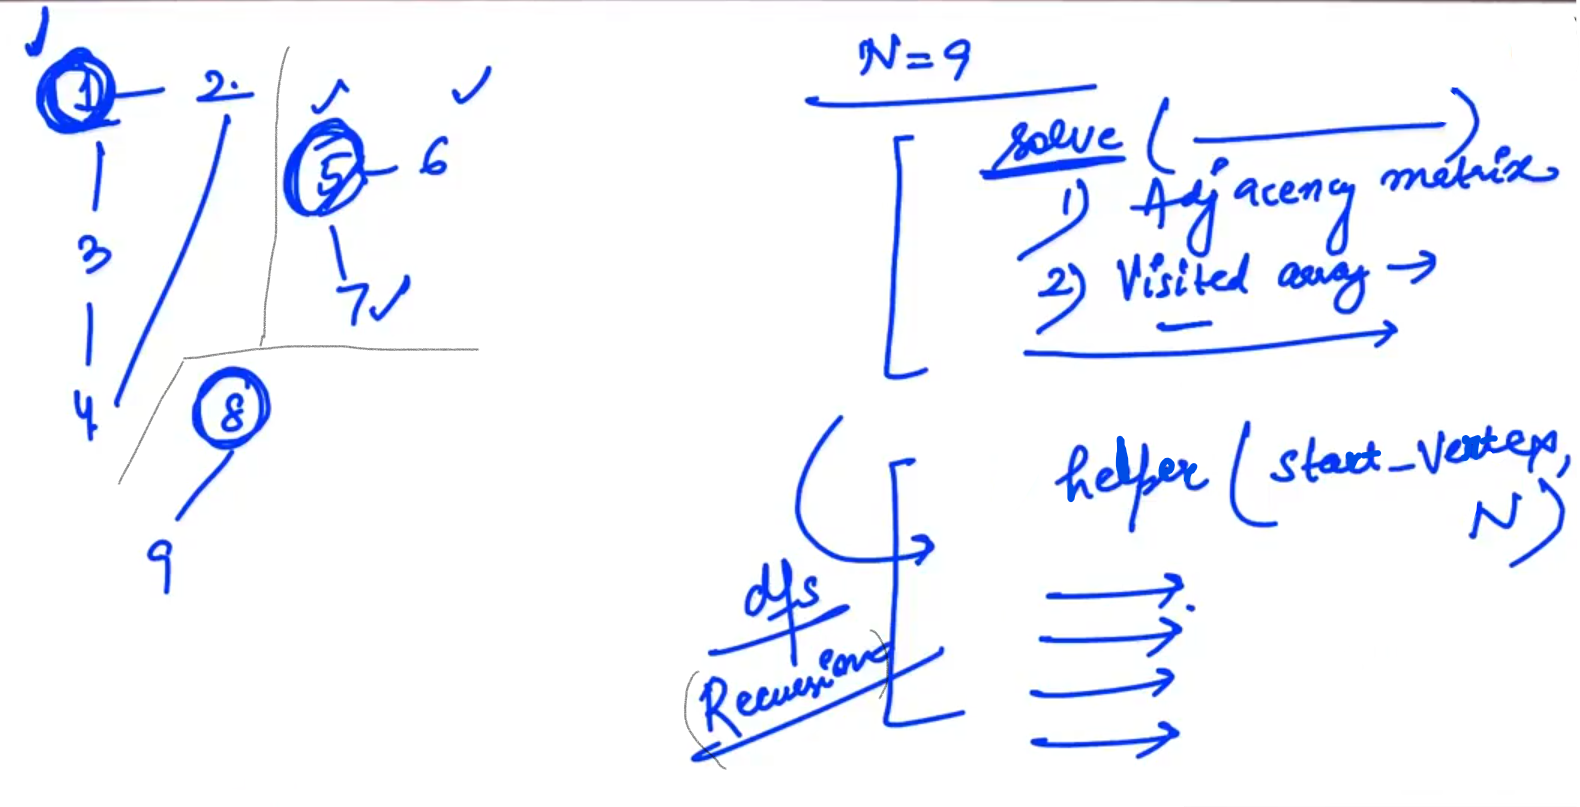 1 2
5 6
3
7
4
8
9
N=9
solve ( )
1) Adjacency metrix
2) Visited array →
helper (start_vertex,
N)
dfs
(Recursion)